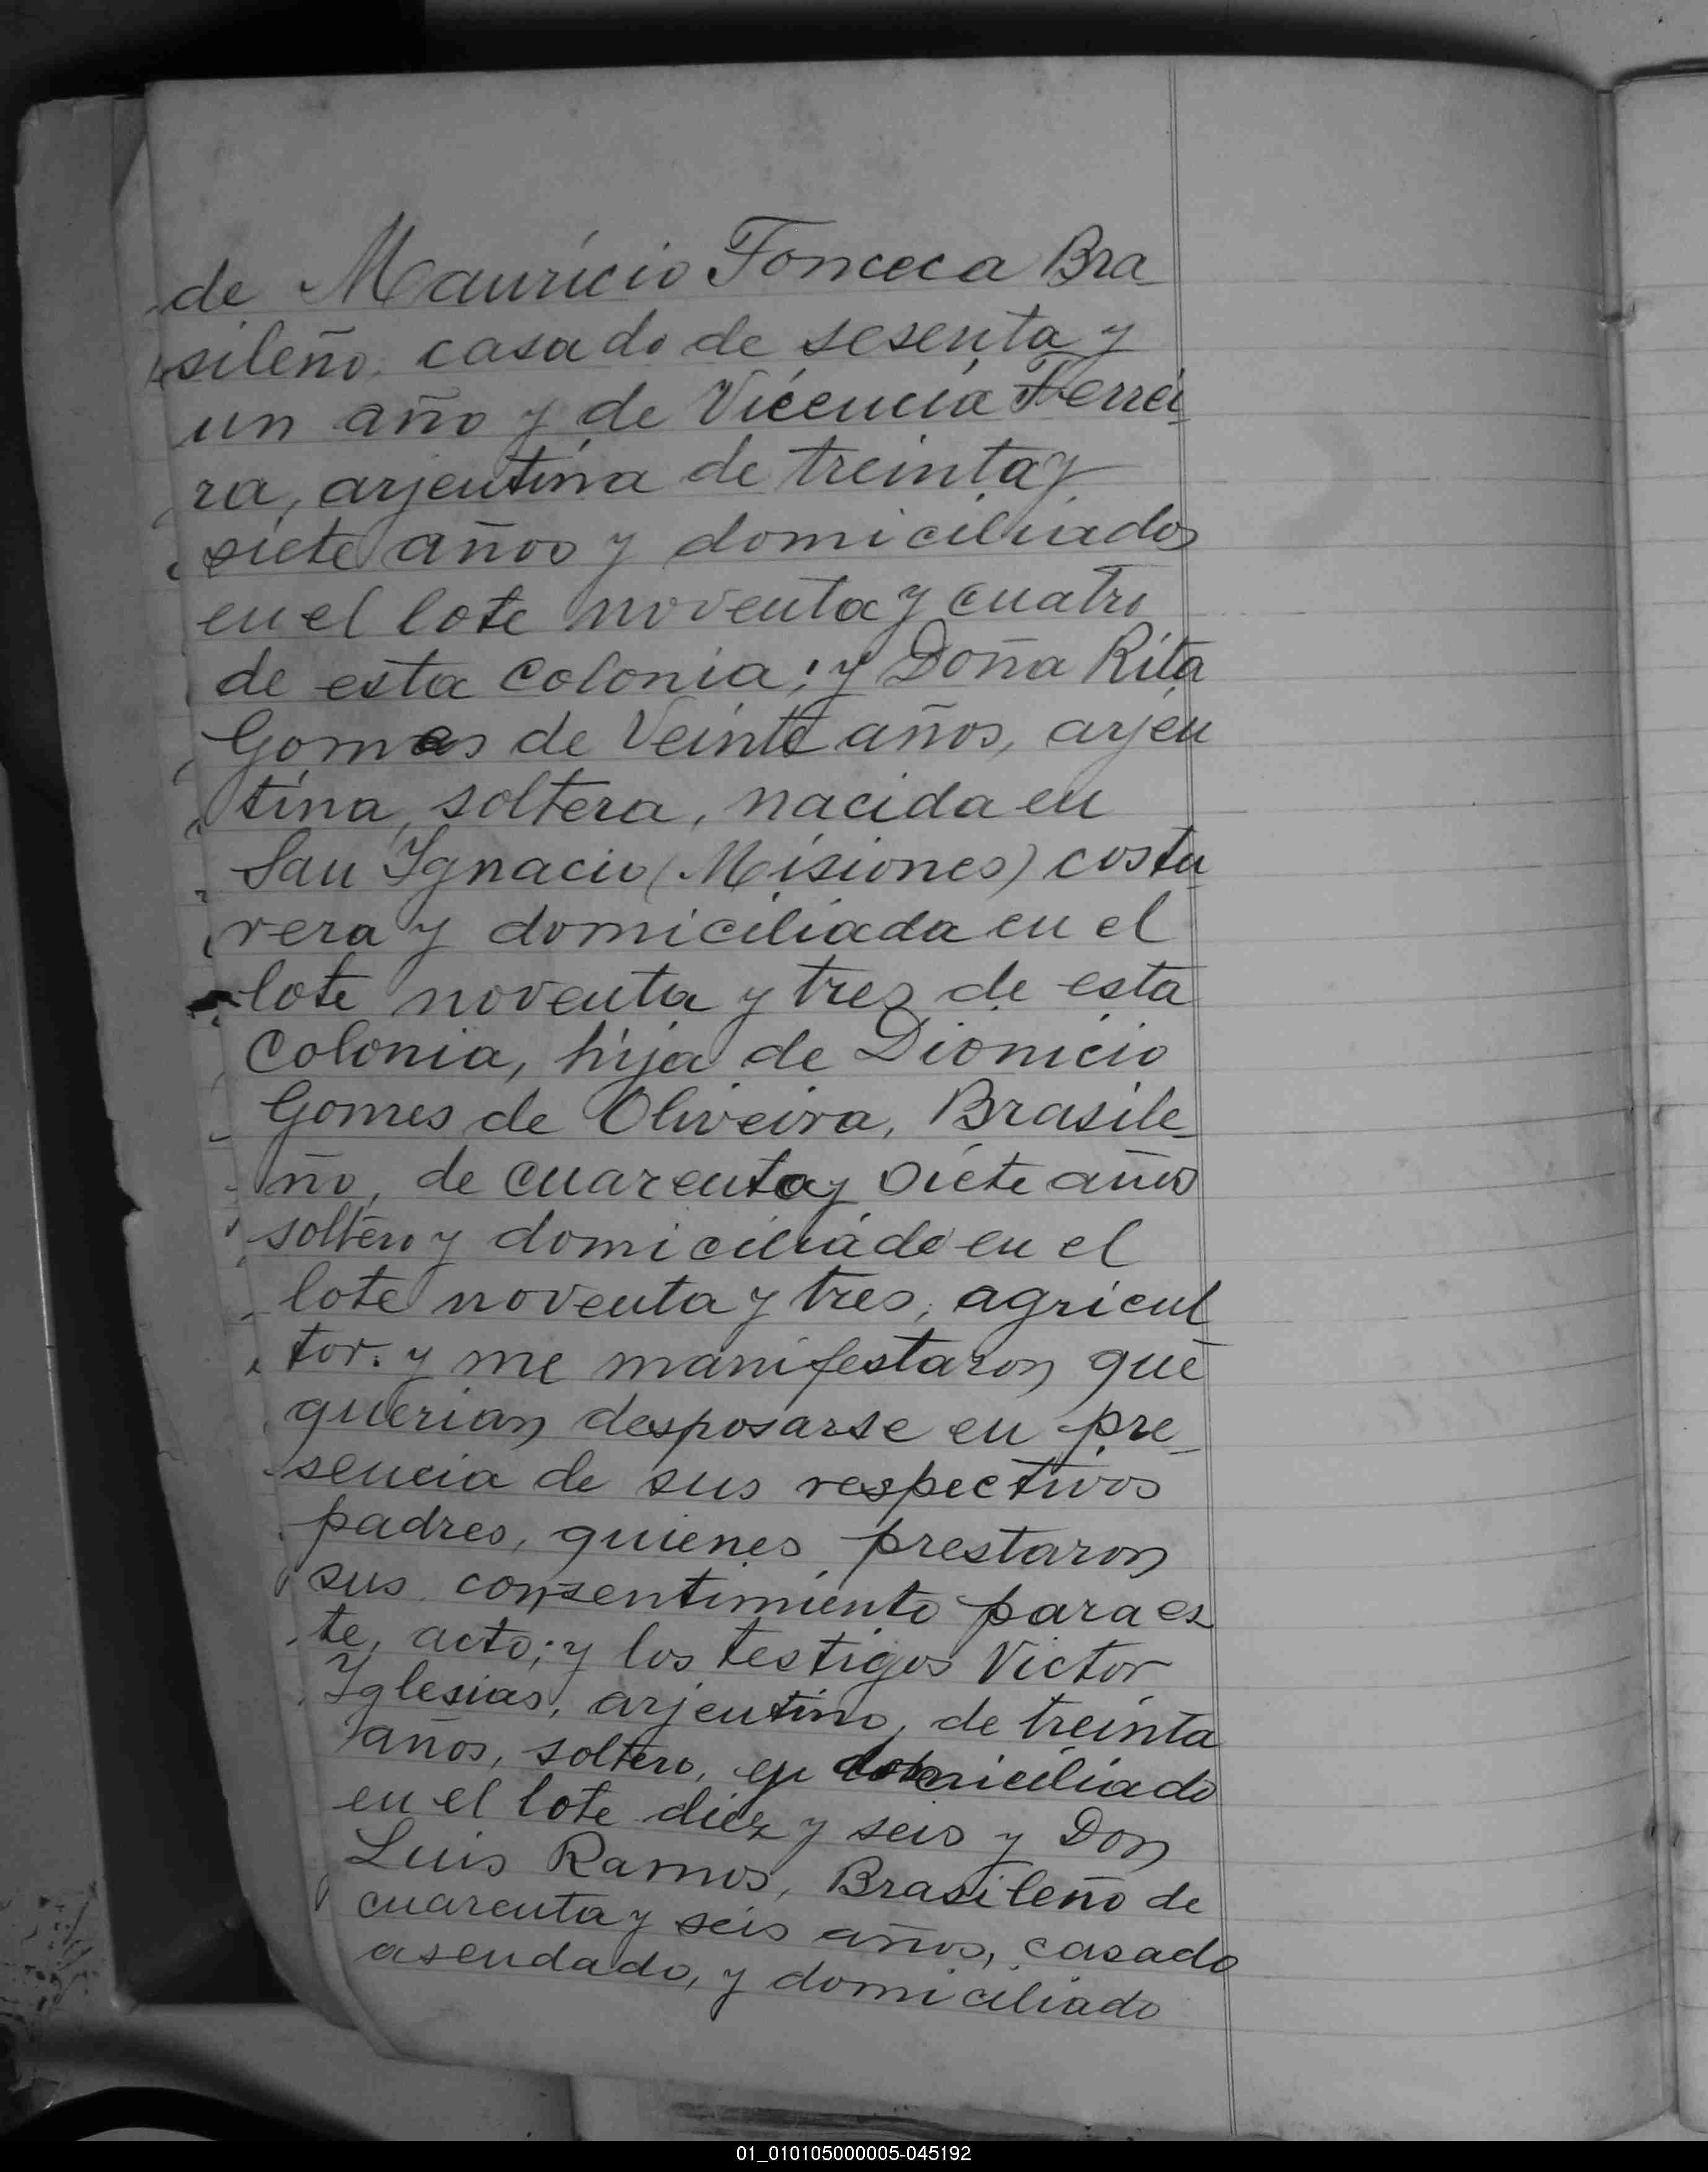 de Mauricio Fonceca Bra
sileño, casado de sesenta y
un año y de Vicencia Ferrei-
ra, arjentina de treinta y
siete años y domiciliados
en el lote noventa y cuatro
de esta Colonia; y Doña Rita
Gomes de Veinte años, arjen
tina, soltera, nacida en
San Ignacio (Misiones) costu
rera y domiciliada en el
lote noventa y tres de esta
Colonia, hija de Dionicio
Gomes de Oliveira, Brasile-
ño, de cuarenta y siete años
soltero y domiciliado en el
lote noventa y tres, agricul
tor. y me manifestaron que
querian desposarse en pre-
sencia de sus respectivos
padres, quienes prestaron
sus consentimiento para es
te, acto; y los testigos Victor
Iglesias, arjentino, de treinta
años, soltero, en domiciliado
en el lote diez y seis y Don
Luis Ramos, Brasileño de
cuarenta y seis años, casado
asendado, y domiciliado
01_010105000005-045192